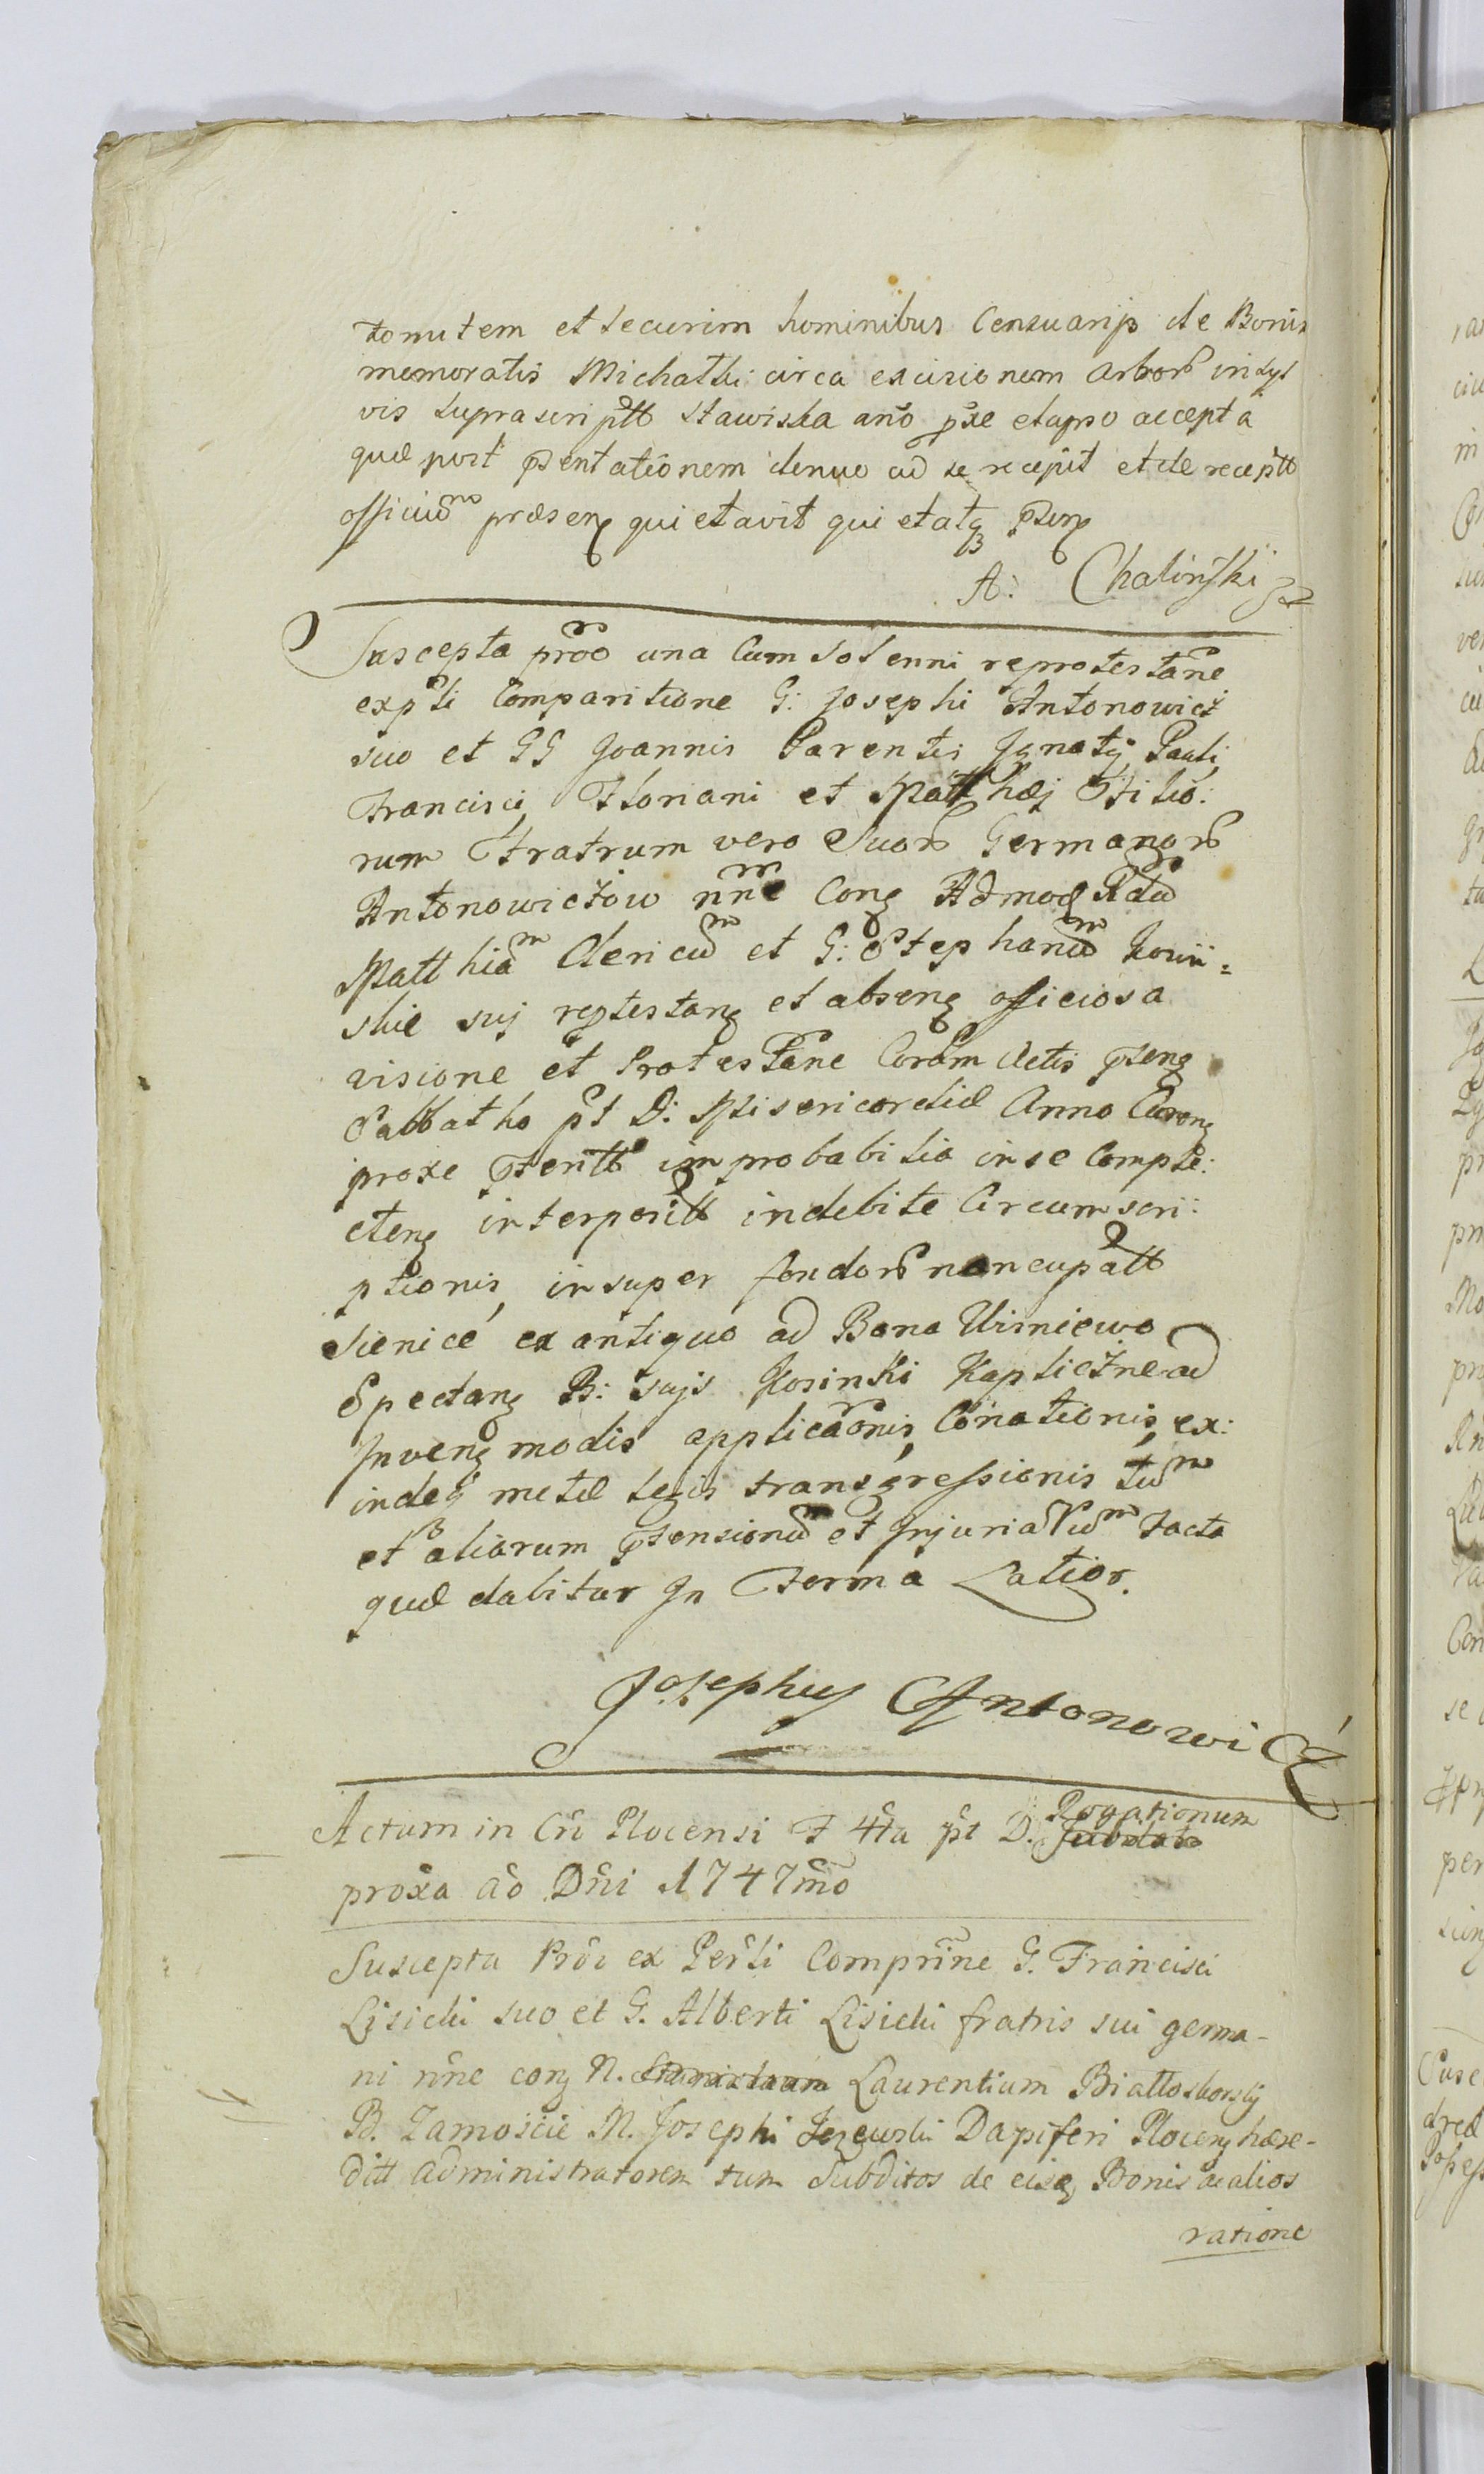 tonutem et securim hominibus Censuarijs de Bonis
memoratis Michałki circa excisionem arborũ in syl
vis suprascriptt Stawiska anõ pxe elapso accepta
quæ post pñtentationem denuo ad se recepit et de receptt
officiũm præsenς quietavit quietatqꝫ pñnς
A: Chalinski
Suscepta prõo una Cum Solenni reprotestãne
expłi Comparitione G: Josephi Antonowicz
suo et GG Joannis Parentis Ignatij Pauli
Francisci Floriani et Matthæj Filio:
rum Fratrum vero Suorũ Germanorũ
Antonowiczow nñe Conς Admodς Rdũ
Matthiãm Clericũm et G: Stephanũm
suj reptestanς et absenς officiosa
visione et Protestãne Corãm Actis pñsenς
Sabbatho pt D: Misericordiæ Anno Currenς
proxe pteritt improbabilia in se Comple:
ctenς interpositt indebite Circumscri:
ptionis, insuper fundorũ nuncupatt
Sienice ex antiquo ad Bona Uisniewo
Spectanς B: sujs Kosinski Kapliczne ad
Invenς modis applicãonis, Cõnationis, ex:
indeqꝫ metæ legis transgressionis tũm
et aliarum ptensionũm et Injuriarũm facta
quæ dabitur In Forma Latior.
Josephus Antonowicz
Actum in Crõ Plocensi F 4ta pt D. Rogationum
proxa aõ Dñi 1747mõ
Suscepta Prõo ex Persłi Comprñne G. Francisci
Lisicki suo et G. Alberti Lisicki fratris sui germa-
ni nñe conς N. Laurentium Białłoskorskij
B. Zamoście M. Josephi Jezewski Dapiferi Plocenς hære-
ditt administratorem tum Subditos de eisdς Bonis ac alios
ratione